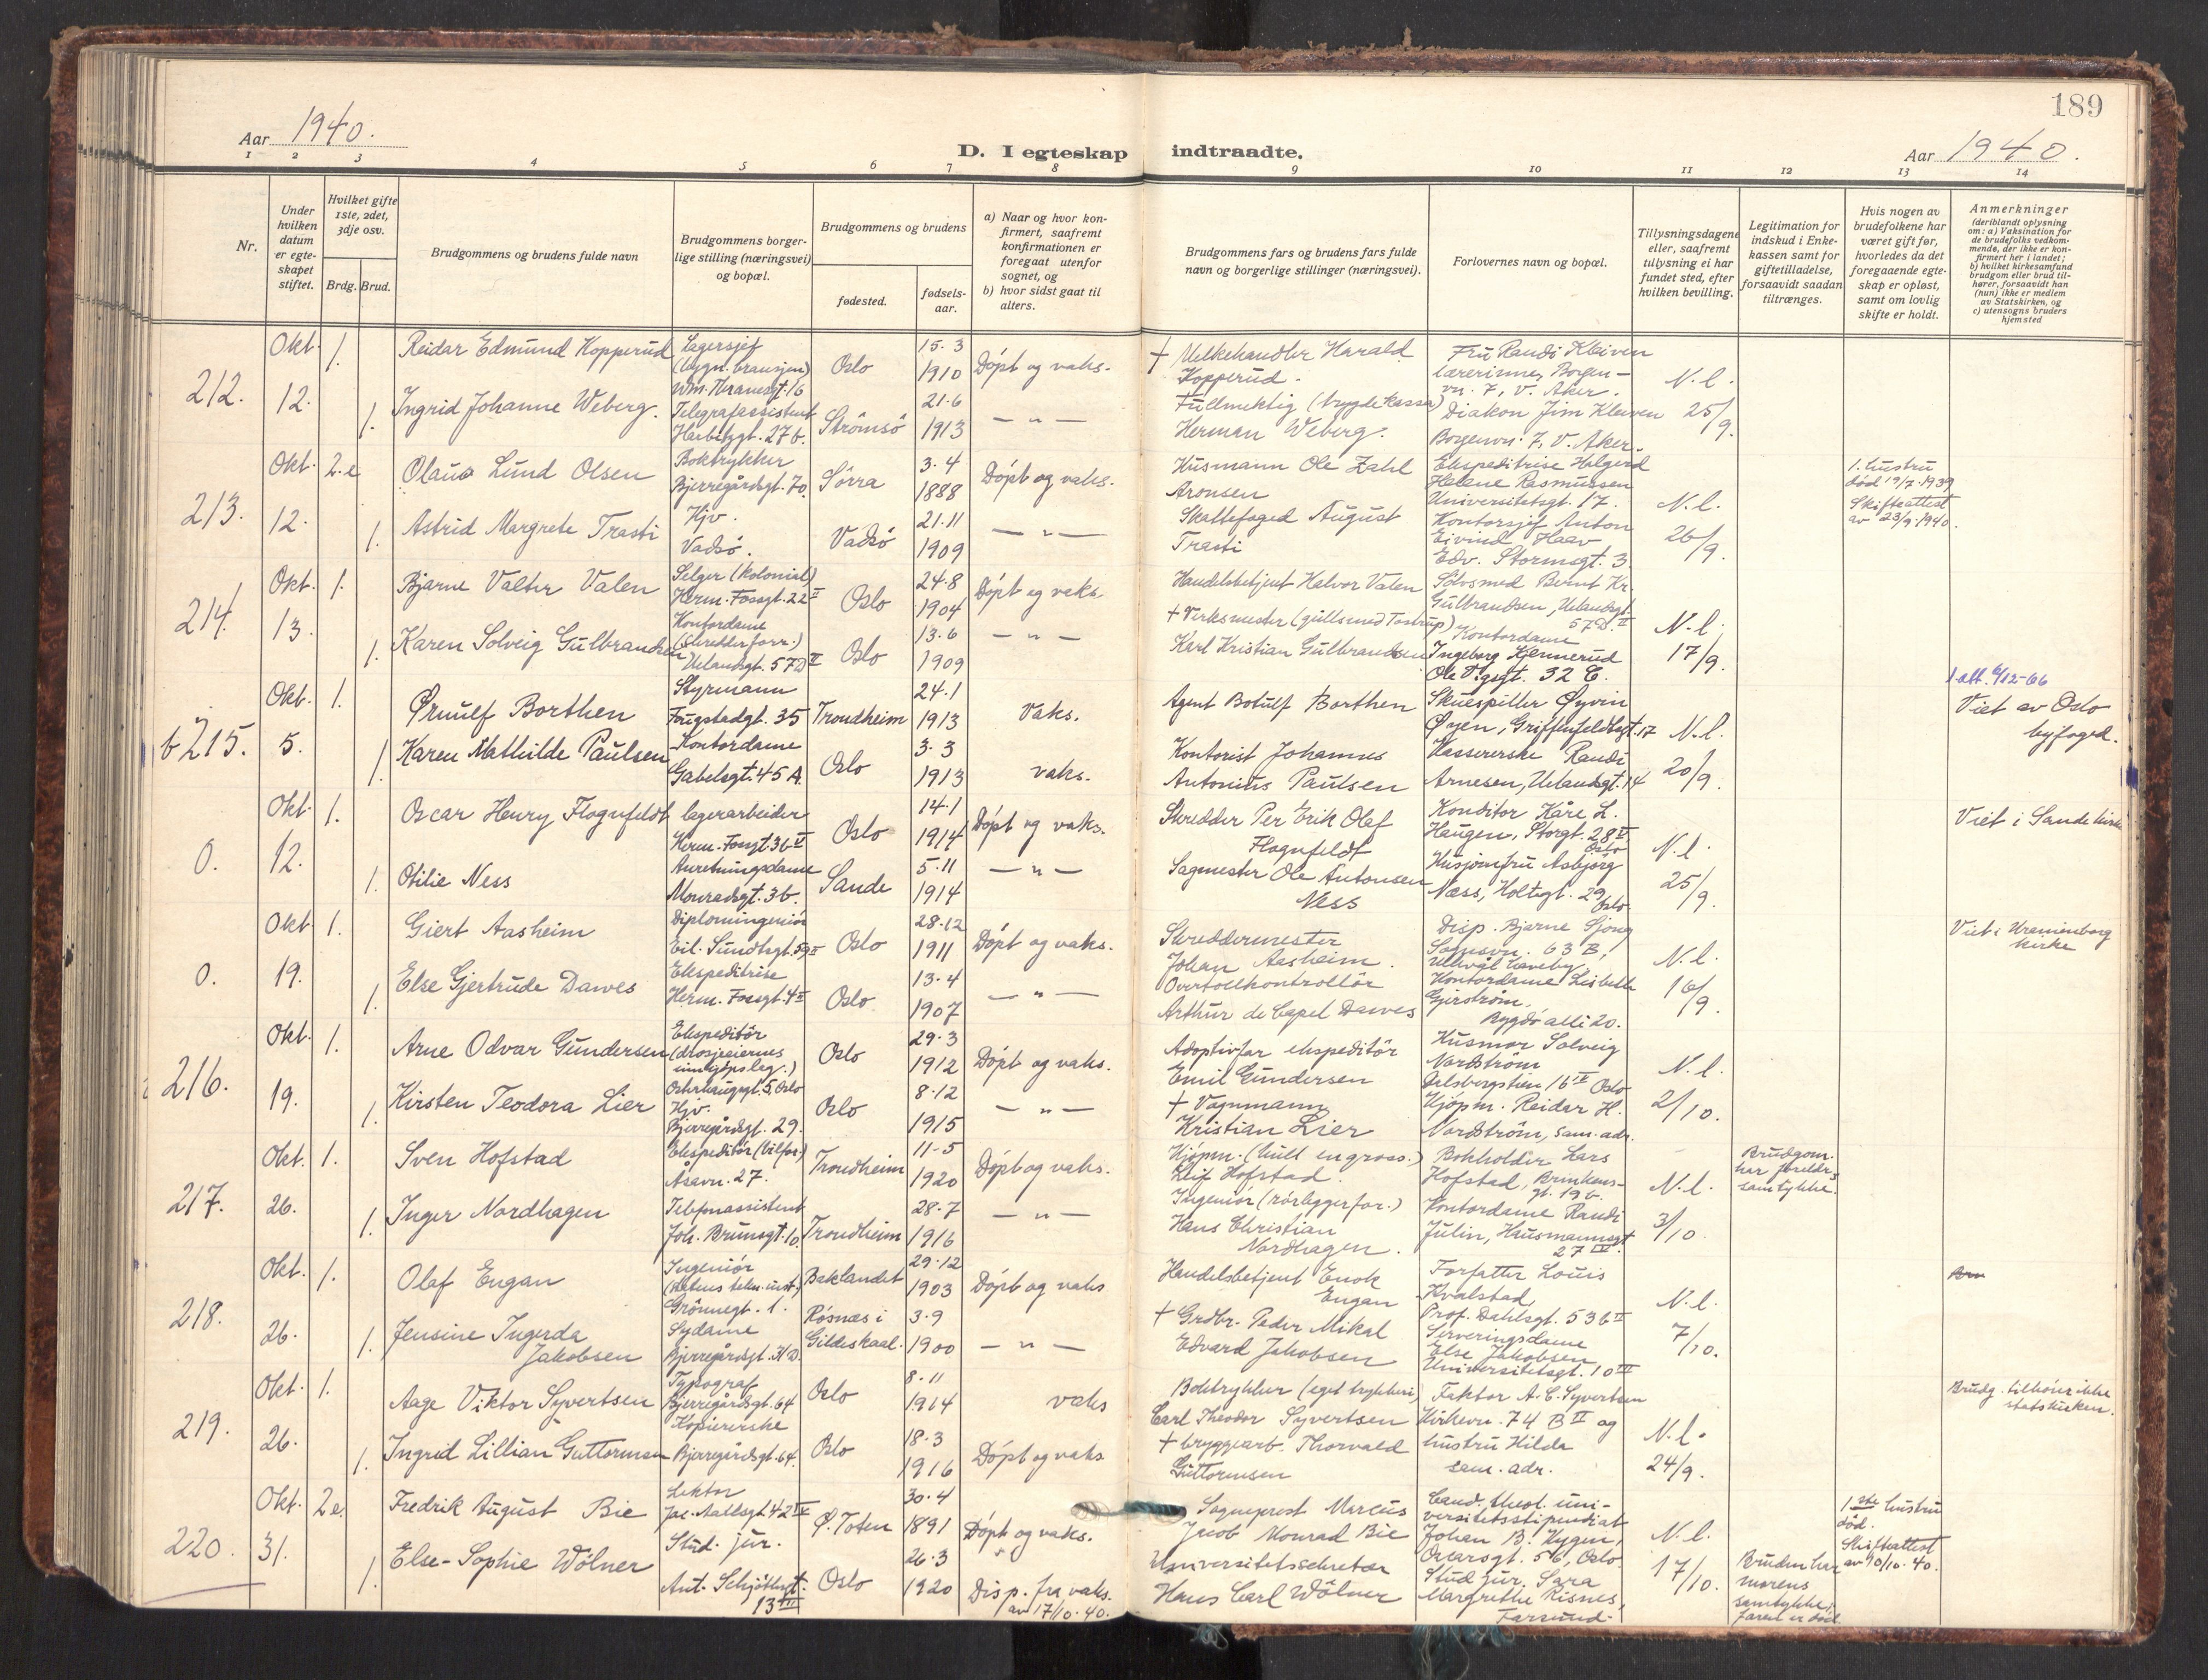 189
Aar 1940.
D. I egteskap indtraadte.
Aar 1940.
1 2 3 4 5 6 7 8 9 10 11 12 13 14
Nr.
Under hvilken datum er egteskapet stiftet.
Hvilket gifte 1ste, 2det, 3dje osv.
Brdg. Brud.
Brudgommens og brudens fulde navn
Brudgommens borgerlige stilling (næringsvei) og bopæl.
Brudgommens og brudens
fødested.
fødselsaar.
a) Naar og hvor konfirmert, saafremt konfirmationen er foregaat utenfor sognet, og
b) hvor sidst gaat til alters.
Brudgommens fars og brudens fars fulde navn og borgerlige stillinger (næringsvei).
Forlovernes navn og bopæl.
Tillysningsdagene eller, saafremt tillysning ei har fundet sted, efter hvilken bevilling.
Legitimation for indskud i Enkekassen samt for giftetilladelse, forsaavidt saadan tiltrænges.
Hvis nogen av brudefolkene har været gift før, hvorledes da det foregaaende egteskap er opløst, samt om lovlig skifte er holdt.
Anmerkninger
(deriblandt oplysning om: a) Vaksination for de brudefolks vedkommende, der ikke er konfirmert her i landet;
b) hvilket kirkesamfund brudgom eller brud tilhører, forsaavidt han (hun) ikke er medlem av Statskirken, og
c) utensogns bruders hjemsted
212. Okt. 12. 1.
Reidar Edmund Kopperud
Lagersjef
Oslo
15.3 1910
Døpt og vaks.
† Melkehandler Harald Kopperud.
Fru Randi Kleiven
lærerinne, Borgenvn. 7, V. Aker.
N.l. 25/9.
1. Ingrid Johanne Weberg.
Telegrafassistent
Strömsö
21.6 1913
— " —
Fullmektig (trygdekassa)
Herman Weberg.
Diakon Jim Kleiven
Borgenvn. 7, V. Aker.
213. Okt. 12. 2.e
Olaus Lund Olsen
Boktrykker
Bjerregårdsgt. 70.
Sörra
3.4 1888
Døpt og vaks.
Husmann Ole Zahl Aronsen
Ekspeditrise Helgerd
Helene Rasmussen
Universitetsgt. 17.
N.l. 26/9.
1. hustru død 19/7. 1939
Skifteattest av 23/9. 1940.
1. Astrid Margrete Trasti
Hjv.
Vadsö.
Vadsö
21.11 1909
— " —
Skattefoged August Trasti
Kontorsjef Anton
Eivind Haav
Edv. Stormsgt. 3.
214. Okt. 13. 1.
Bjarne Valter Valen
Selger (kolonial)
Herm. Fossgt. 22 II
Oslo
24.8 1904
Døpt og vaks.
Handelsbetjent Halvor Valen
Sölvsmed Bernt Kr.
Gulbrandsen, Uelandsgt. 57 D. II
N.l. 17/9.
1. Karen Solveig Gulbrandsen
Kontordame
(skredderforr.)
Uelandsgt. 57 D II
Oslo
13.6 1909
— " —
† Verksmester (gullsmed Tostrup)
Karl Kristian Gulbrandsen
Kontordame
Ingeborg Kjennerud
Ole Vigsgt. 32 C.
b 215. Okt. 5. 1.
Ørnulf Borthen
Styrmann
Fougstadgt. 35
Trondheim
24.1 1913
Vaks.
Agent Botulf Borthen
Skuespiller Øyvin
Øyen, Griffenfeldtsgt. 17
N.l. 20/9.
1 att. 6/12-66
Viet av Oslo byfoged.
1. Karen Mathilde Paulsen
Kontordame
Gabelsgt. 45 A.
Oslo
3.3 1913
vaks.
Kontorist Johannes
Antonius Paulsen
Kassererske Randi
Arnesen, Uelandsgt. 14
0. Okt. 12. 1.
Oscar Henry Flognfeldt
lagerarbeider
Herm. Fossgt. 36 V
Oslo
14.1 1914
Døpt og vaks.
Skredder Per Erik Olaf
Flognfeldt
Konditor Kåre L.
Haugen, Storgt. 28 II, Oslo
N.l. 25/9.
Viet i Sande kirke
1. Otilie Ness
Anretningsdame
Monradsgt. 3b.
Sande
5.11 1914
— " —
Sagmester Ole Antonsen
Ness
Husjomfru Asbjørg
Næss, Holtegt. 29, Oslo
0. Okt 19. 1.
Giert Aasheim
Diplomingeniör
Eil. Sundtsgt. 59 II
Oslo
28.12 1911
Døpt og vaks.
Skreddermester
Johan Aasheim.
Disp. Bjarne
Sognsvn. 63 B,
Ullevål haveby.
N.l. 16/9.
Viet i Uranienborg kirke
1. Else Gjertrude Dawes
Ekspeditrise
Herm. Fossgt. 4 II
Oslo
13.4 1907
— " —
Overtollkontrollör
Arthur de Capel Dawes
Kontordame Lisbeth
Gjerström.
Bygdö allé 20.
216. Okt. 19. 1.
Arne Odvar Gundersen
Ekspeditör
(drosjeeiernes innkjøpslag.)
Osterhausgt. 5, Oslo
Oslo
29.3 1912
Døpt og vaks.
Adoptivfar ekspeditör
Emil Gundersen
Husmor Solveig
Nordström
Carlsbergstien 16 IV Oslo
N.l. 2/10.
1. Kirsten Teodora Lier
Hjv.
Bjerregårdsgt. 29.
Oslo
8.12 1915
— " —
† Vognmann
Kristian Lier
Kjøpm. Reidar H.
Nordström, sam. adr.
217. Okt. 26. 1.
Sven Hofstad
Ekspeditör (bilfor.)
Åsavn. 27.
Trondheim
11-5 1920
Døpt og vaks.
Kjøpm. (hull engross.)
Leif Hofstad.
Bokholder Lars
Hofstad, Brinkensgt. 19 b.
N.l. 3/10
Brudgom. har foreldres samtykke.
1. Inger Nordhagen
Telefonassistent
Joh. Brunsgt. 10.
Trondheim
28.7 1916
— " —
Ingeniör (rörleggerfor.)
Hans Christian
Nordhagen.
Kontordame Randi
Julin, Hausmannsgt 27 IV.
218. Okt. 26. 1.
Olaf Engan
Ingeniör
(Statens tekn. inst.)
Grönnegt. 1.
Baklandet
29.12 1903
Døpt og vaks
Handelsbetjent Enok
Engan
Forfatter Louis
Kvalstad,
Prof. Dahlsgt. 53 b II
N.l. 7/10.
1. Jensine Ingerda
Jakobsen
Sydame
Bjerregårdsgt. 31 D.
Røsnæs i Gildeskaal.
3.9 1900
— " —
† Grdbr. Peder Mikal
Edvard Jakobsen
Serveringsdame
Else Jakobsen
Universitetsgt. 10 III
219. Okt. 26. 1.
Aage Viktor Syvertsen
Typograf
Bjerregårdsgt. 64
Oslo
8.11 1914
vaks
Boktrykker (eget trykkeri)
Carl Theodor Syvertsen
Faktor A. C. Syvertsen
Kirkevn. 74 B II og
N.l. 24/9.
Brudg. tilhører ikke statskirken.
1. Ingrid Lillian Guttormsen
Kopiererske
Bjerregårdsgt. 64.
Oslo
18.3 1916
Døpt og vaks
† bryggearb. Thorvald
Guttormsen
hustru Hilda
sam. adr.
220. Okt. 31. 2e.
Fredrik August Bie
Lektor
Jac. Aallsgt. 42 IV
Ø. Toten
30.4 1891
Døpt og vaks.
Sogneprest Marcus
Jacob Monrad Bie
Cand. theol. universitetsstipendiat
Johan B. Hygen,
Oscarsgt. 56, Oslo
N.l. 17/10.
1 ste hustru død.
Skifteattest av 10/10. 40.
1. Else-Sophie Wölner
Stud. jur.
Ant. Schjöttsgt. 13 III
Oslo
26.3 1920
Disp. fra vaks. av 17/10. 40.
Universitetssekretær
Hans Carl Wölner
Stud. jur. Sara
Margrethe Risnes,
Farsund.
Bruden har morens samtykke; faren er død.